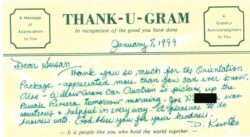 A Message
of
Appreciation
to You
THANK-U-GRAM
In recognition of the good you have done
A Grateful
Acknowledgment
to You
January 8, 1999
Dear Susan
Thank you so much for the Orientation
Package - appreciated more than you can ever know.
Also - Willow-Grove Car Auction is picking up the
Buick Riviera tomorrow morning - Joe was
courteous & helpful in every way. It's pleasure to do
business with. God bless you for your kindness.
It is people like you who hold the world together.